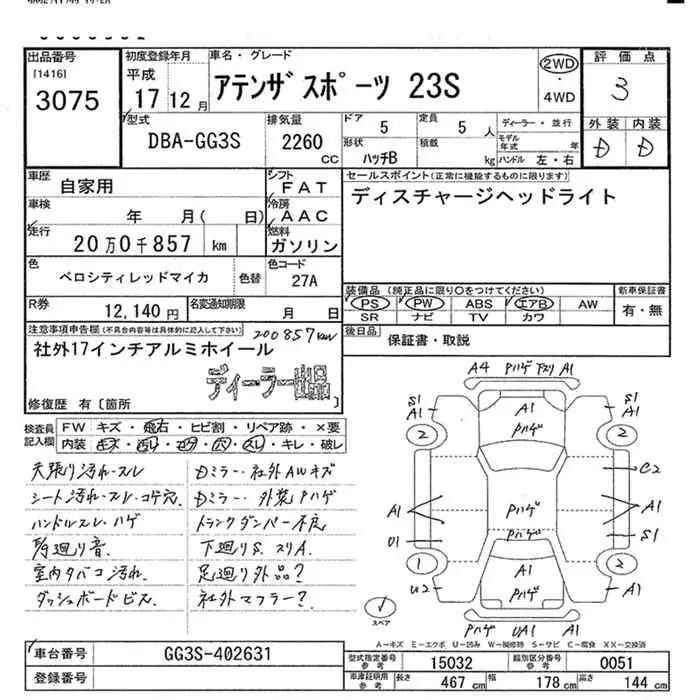 出品番号
[1416]
3075
初度登録年月
平成
17 12 月
車名・グレード
アテンザスポーツ 23S
2WD
・
4WD
評価点
3
外装 内装
D D
型式
DBA-GG3S
排気量
2260
CC
ドア 5
形状
ハッチB
定員 5 人
積載
kg
ディーラー・並行
モデル
年式 年
ハンドル 左・右
車歴
自家用
シフト
FAT
車検
年 月( 日)
冷房
AAC
走行
20万0千857 km
燃料
ガソリン
色
ベロシティレッドマイカ
色替
色コード
27A
R券
12,140 円
名変通知期限
月 日
セールスポイント(正常に機能するものに限ります)
ディスチャージヘッドライト
装備品(純正品に限り○をつけてください)
PS PW ABS エアB AW
SR ナビ TV カワ
新車保証書
有・無
後日品
保証書・取説
注意事項申告欄(不具合内容等は具体的に記入して下さい)
200857km
社外17インチアルミホイール
ディーラー出品
修復歴 有〔箇所 〕
検査員
記入欄
FW キズ・飛石・ヒビ割・リペア跡・×要
内装 キズ・汚れ・コゲ・穴・スレ・キレ・破レ
天張り汚れ・スレ
シート汚れ・スレ・コゲ穴
ハンドルスレ・ハゲ
室内タバコ汚れ.
ダッシュボードビス.
Dミラー・社外AWキズ
Dミラー・外装Pハゲ
トランクダンパー不良
下廻りS. スリA.
足廻り外品?
社外マフラー?
A4 Pハゲ A1
S1
A1
2
A1
Pハゲ
S1
A1
2
C2
A1
U1
Pハゲ
A1
S1
Pハゲ
1
U2
A1
Pハゲ
2
A1
Pハゲ UA1 A1
スペア
A-キズ E-エクボ U-凹み W-補修跡 S-サビ C-腐食 XX-交換済
車台番号
GG3S-402631
登録番号
型式指定番号
参考
15032
類別区分番号
参考
0051
車庫証明用
参考
長さ 467 cm
幅 178 cm
高さ 144 cm